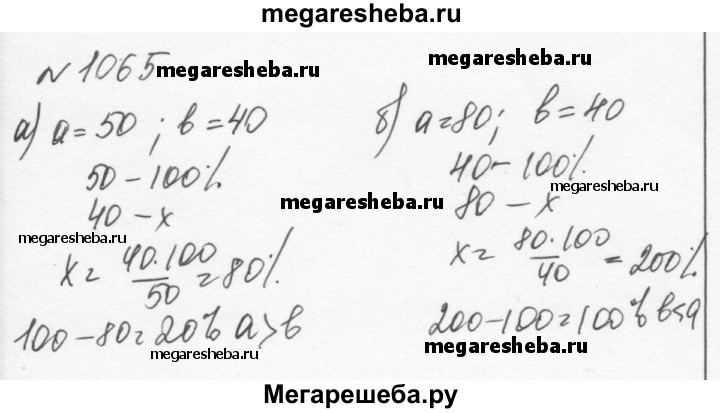 megaresheba.ru
№ 1065 megaresheba.ru
megaresheba.ru
а) a = 50 ; b = 40
50 – 100%
40 – x
megaresheba.ru
x = 40·100/50 = 80%
100 – 80 = 20% a > b
megaresheba.ru
б) a = 80; b = 40
40 – 100%
megaresheba.ru
80 – x
megaresheba.ru
x = 80·100/40 = 200%
200 – 100 = 100% b < a
megaresheba.ru
Мегарешеба.ру